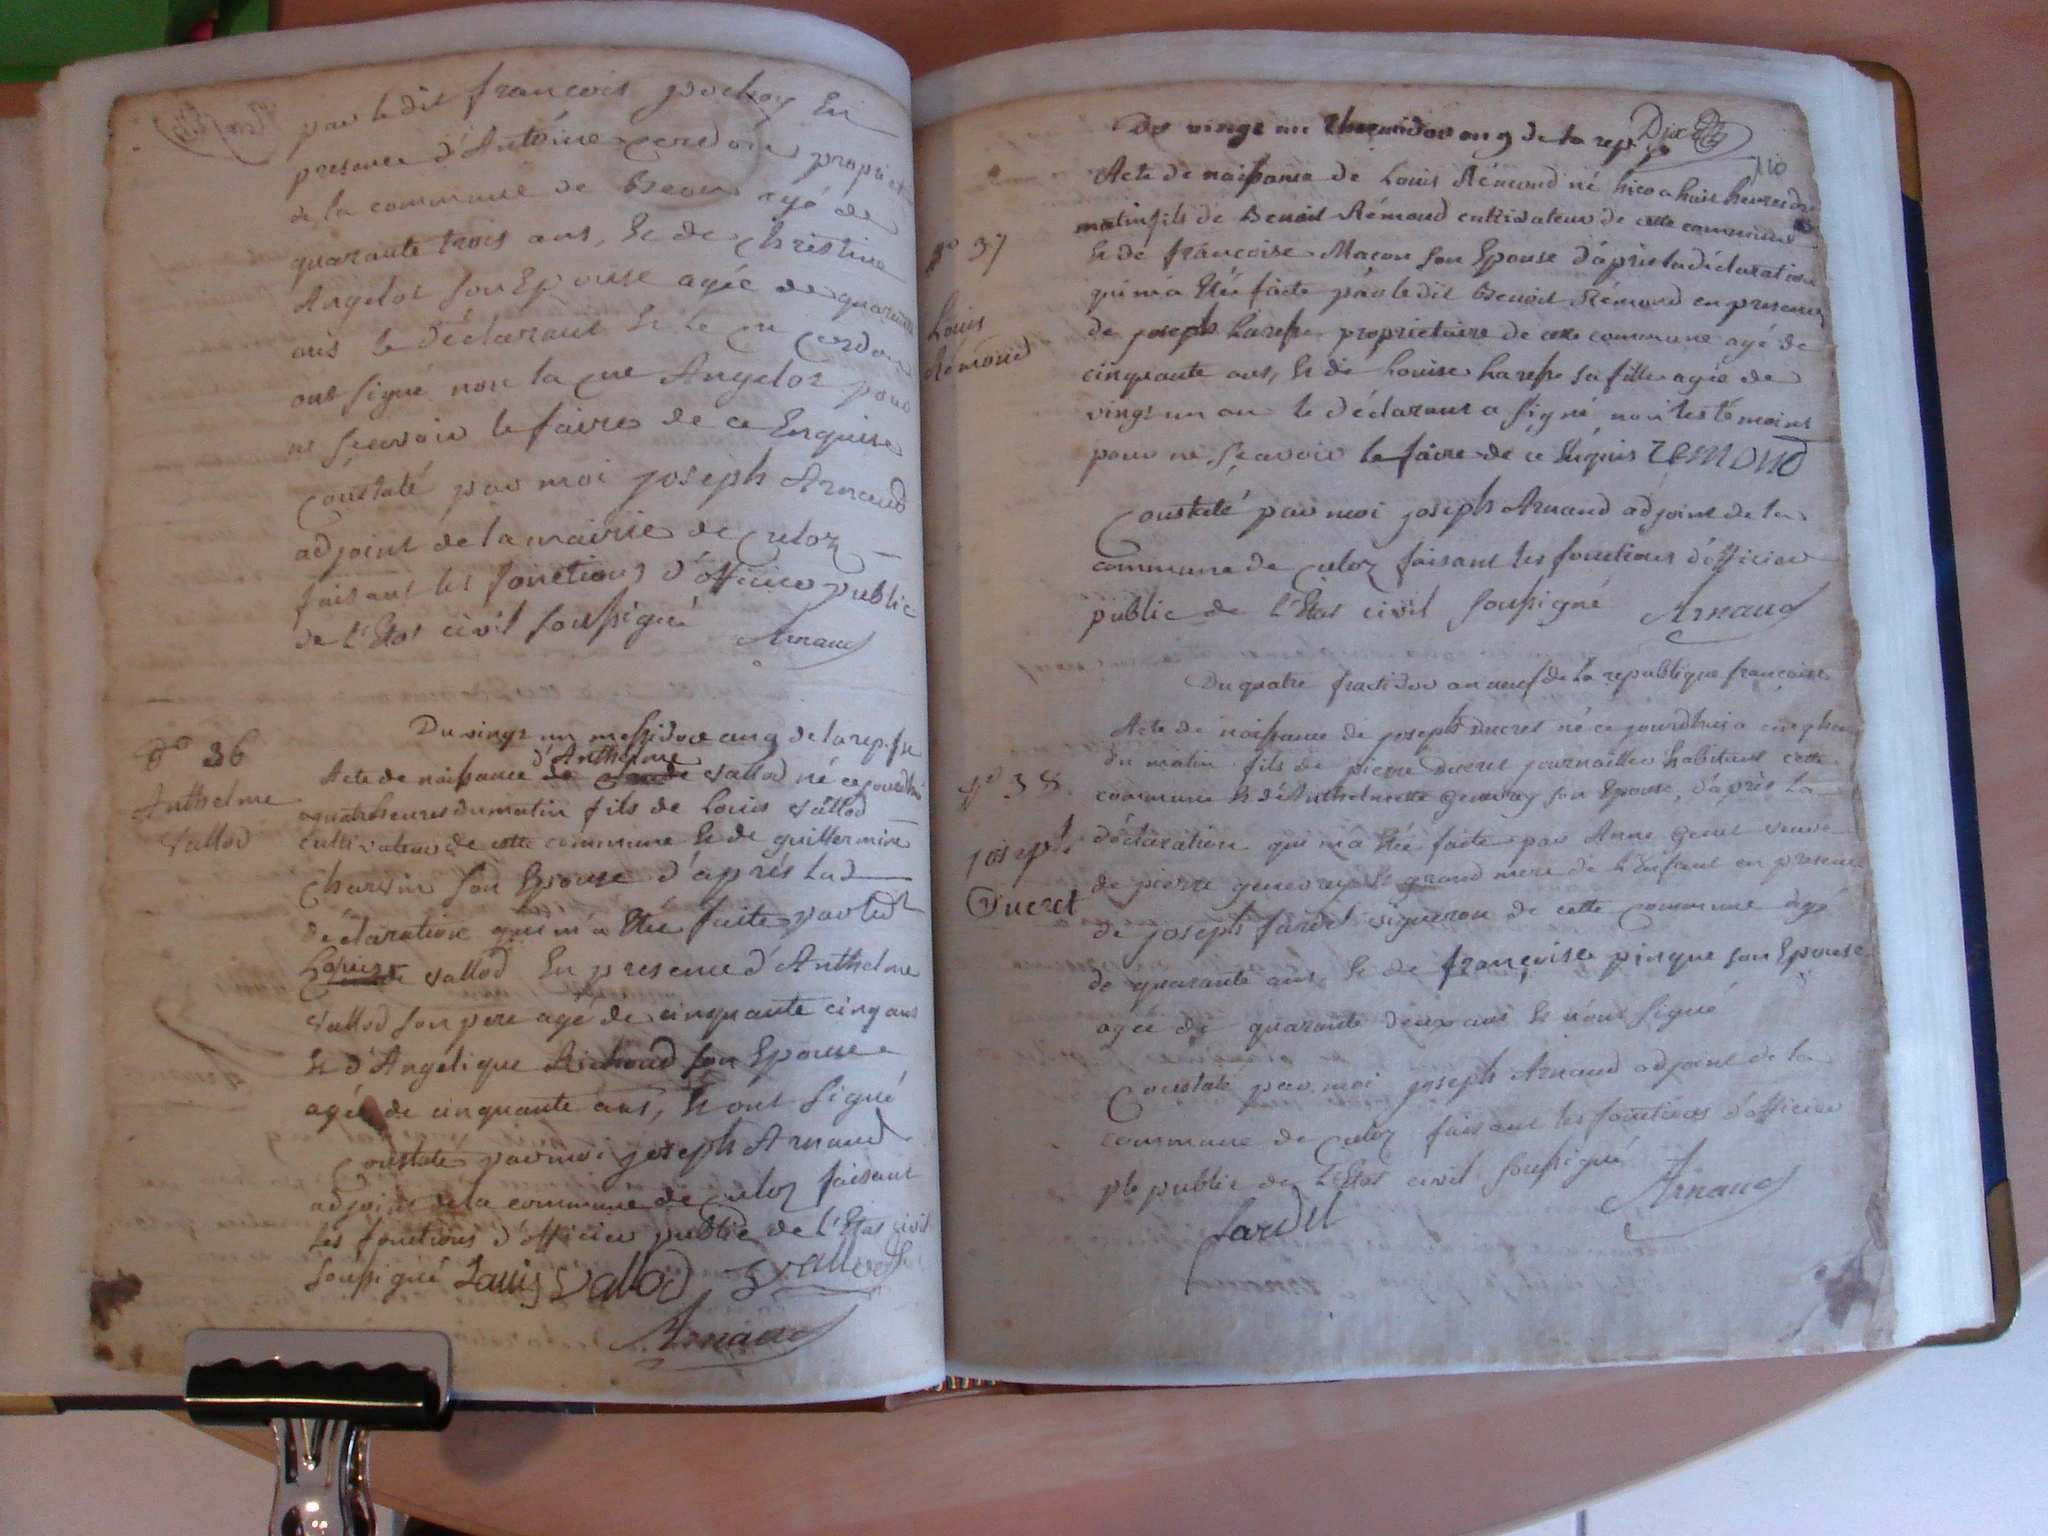 par le dit francois pochoy En
presence d'Antoine cerdon propriet
de la commune de Beon agé de
quarante trois ans, Et de christine
Angeloz son Epouse agée de quarante
ans le Déclarant Et le cn cerdon
ont signé non la cne Angeloz pour
ne sçavoir le faire de ce Enquise
Constaté par moi joseph Arnaud
adjoint de la mairie de culoz
faisant les fonctions d'officier public
de l'Etat civil soussigné Arnaud
No 36
Anthelme
vallod
Du vingt un messidor an 9 de la rep. fse
d'Anthelme
Acte de naissance de vallod né ce jourdhui
a quatre heures du matin fils de Louis vallod
cultivateur de cette commune Et de guillermine
charvin son Epouse d'après la d
déclaration qui m'a Etée faite par ledt
Louis vallod En presence d'Anthelme
vallod son pere agé de cinquante cinq ans
Et d'Angélique Richoud son Epouse
agée de cinquante ans, Et ont signé
Constaté par moi joseph Arnaud
adjoint de la commune de culoz faisant
les fonctions d'officier public de l'Etat civil
soussigné Louis vallod vallod
Arnaud
Dix
110
Du vingt un thermidor an 9 de la rep. fse
No 37
Louis
Rémond
Acte de naissance de Louis Rémond né hier a huit heures du
matin fils de Benoit Rémond cultivateur de cette commune
Et de francoise Macon son Epouse d'après la déclaration
qui m'a Etée faite par le dit Benoit Rémond en presence
de joseph proprietaire de cette commune agé de
cinquante ans, Et de Louise sa fille agée de
vingt un an le Déclarant a signé non les témoins
pour ne sçavoir le faire de ce Enquis remond
Constaté par moi joseph Arnaud adjoint de la
commune de culoz faisant les fonctions d'officier
public de l'Etat civil soussigné Arnaud
Du quatre fructidor an neuf de la republique francoise
No 38
joseph
Ducret
Acte de naissance de joseph Ducret né ce jourdhui a cinq heures
du matin fils de pierre Ducret journaillier habitant cette
commune Et d'Anthelmette genevrey son Epouse, d'après la
déclaration qui m'a Etée faite par Anne genet veuve
de pierre genevrey Et grand mere de l'Enfant en presence
de joseph fardel vigneron de cette commune agé
de quarante ans Et de françoise pingue son Epouse
agée de quarante deux ans Et n'ont signé
Constaté par moi joseph Arnaud adjoint de la
commune de culoz faisant les fonctions d'officier
public de l'Etat civil soussigné Arnaud
fardel